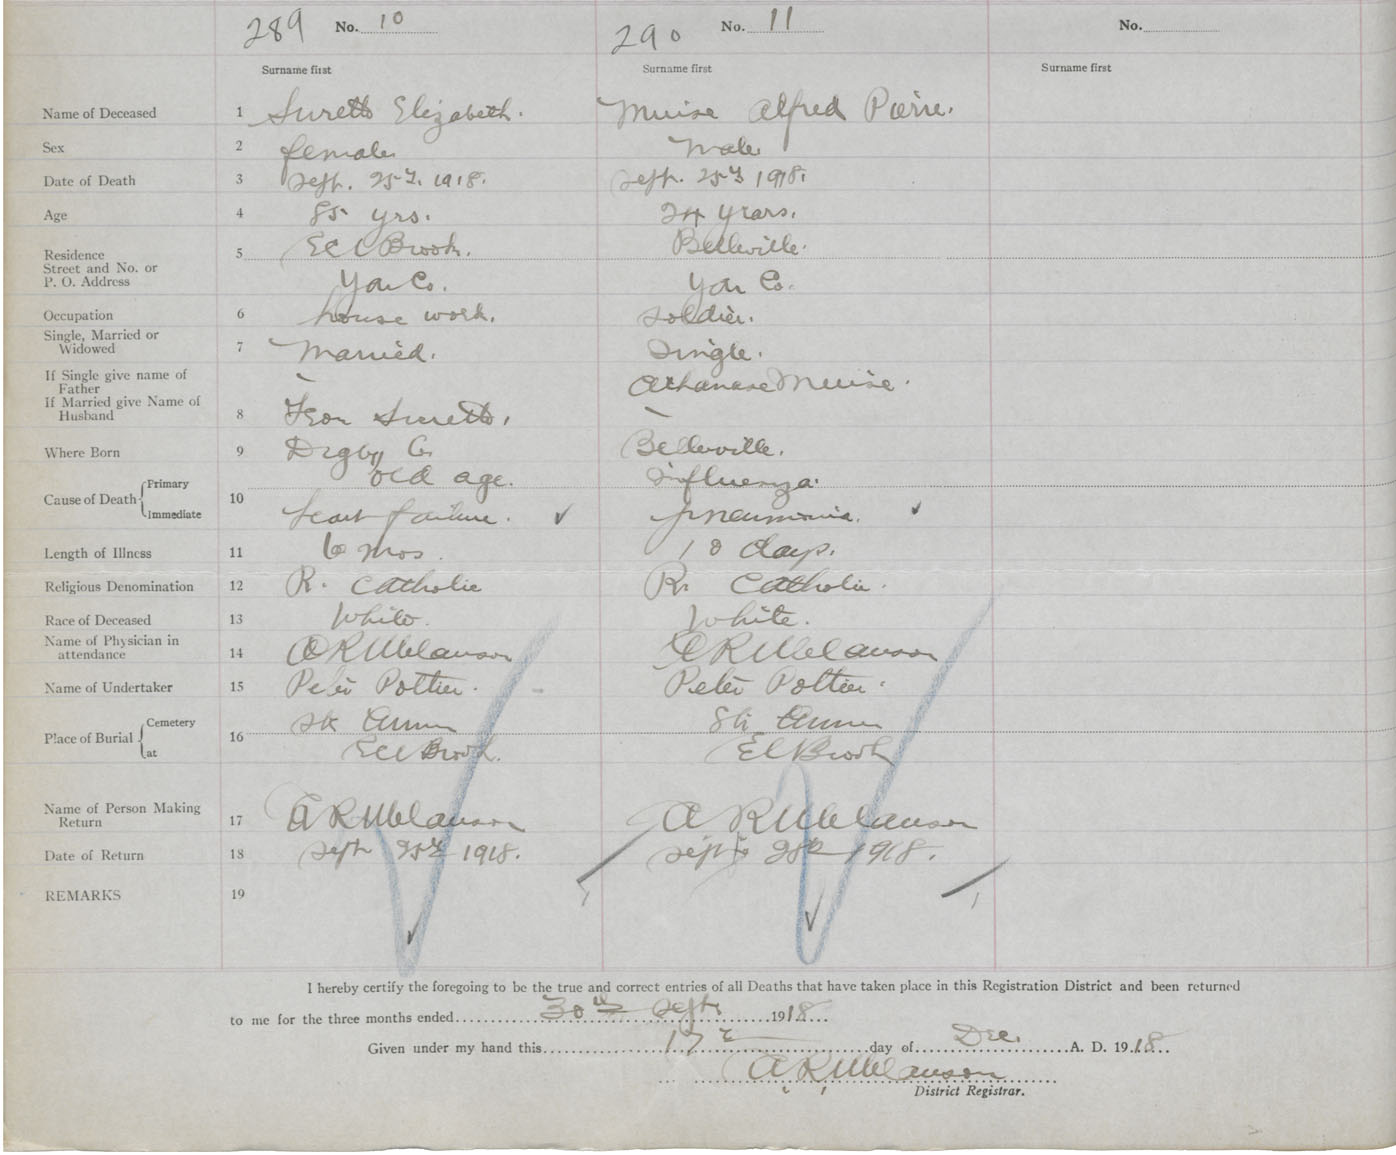 289 No. 10 290 No. 11 No.
Surname first Surname first Surname first
Name of Deceased 1 Surette Elizabeth. Muise Alfred Pierre.
Sex 2 female male
Date of Death 3 Sept. 25th. 1918. Sept. 25th 1918.
Age 4 85 yrs. 24 years.
Residence 5 Eel Brook. Belleville.
Street and No. or
P. O. Address Yar Co. Yar Co.
Occupation 6 house work. soldier.
Single, Married or
Widowed 7 Married. Single.
If Single give name of
Father - Athanase Muise.
If Married give Name of
Husband 8 Surette. -
Where Born 9 Digby Co. Belleville.
Cause of Death Primary old age. Influenza.
10
Immediate heart failure. ✓ pneumonia. ✓
Length of Illness 11 6 mos. 10 days.
Religious Denomination 12 R. Catholic R. Catholic.
Race of Deceased 13 White. White.
Name of Physician in
attendance 14 A R Melanson A R Melanson
Name of Undertaker 15 Peter Pottier. Peter Pottier.
Place of Burial Cemetery Ste Anne Ste Anne
16
at Eel Brook. El Brook
Name of Person Making
Return 17 A R Melanson A R Melanson
Date of Return 18 Sept 1918. Sept 1918.
REMARKS 19
I hereby certify the foregoing to be the true and correct entries of all Deaths that have taken place in this Registration District and been returned
to me for the three months ended 30th Sept. 1918
Given under my hand this day of Dec. A. D. 1918
A R Melanson
District Registrar.